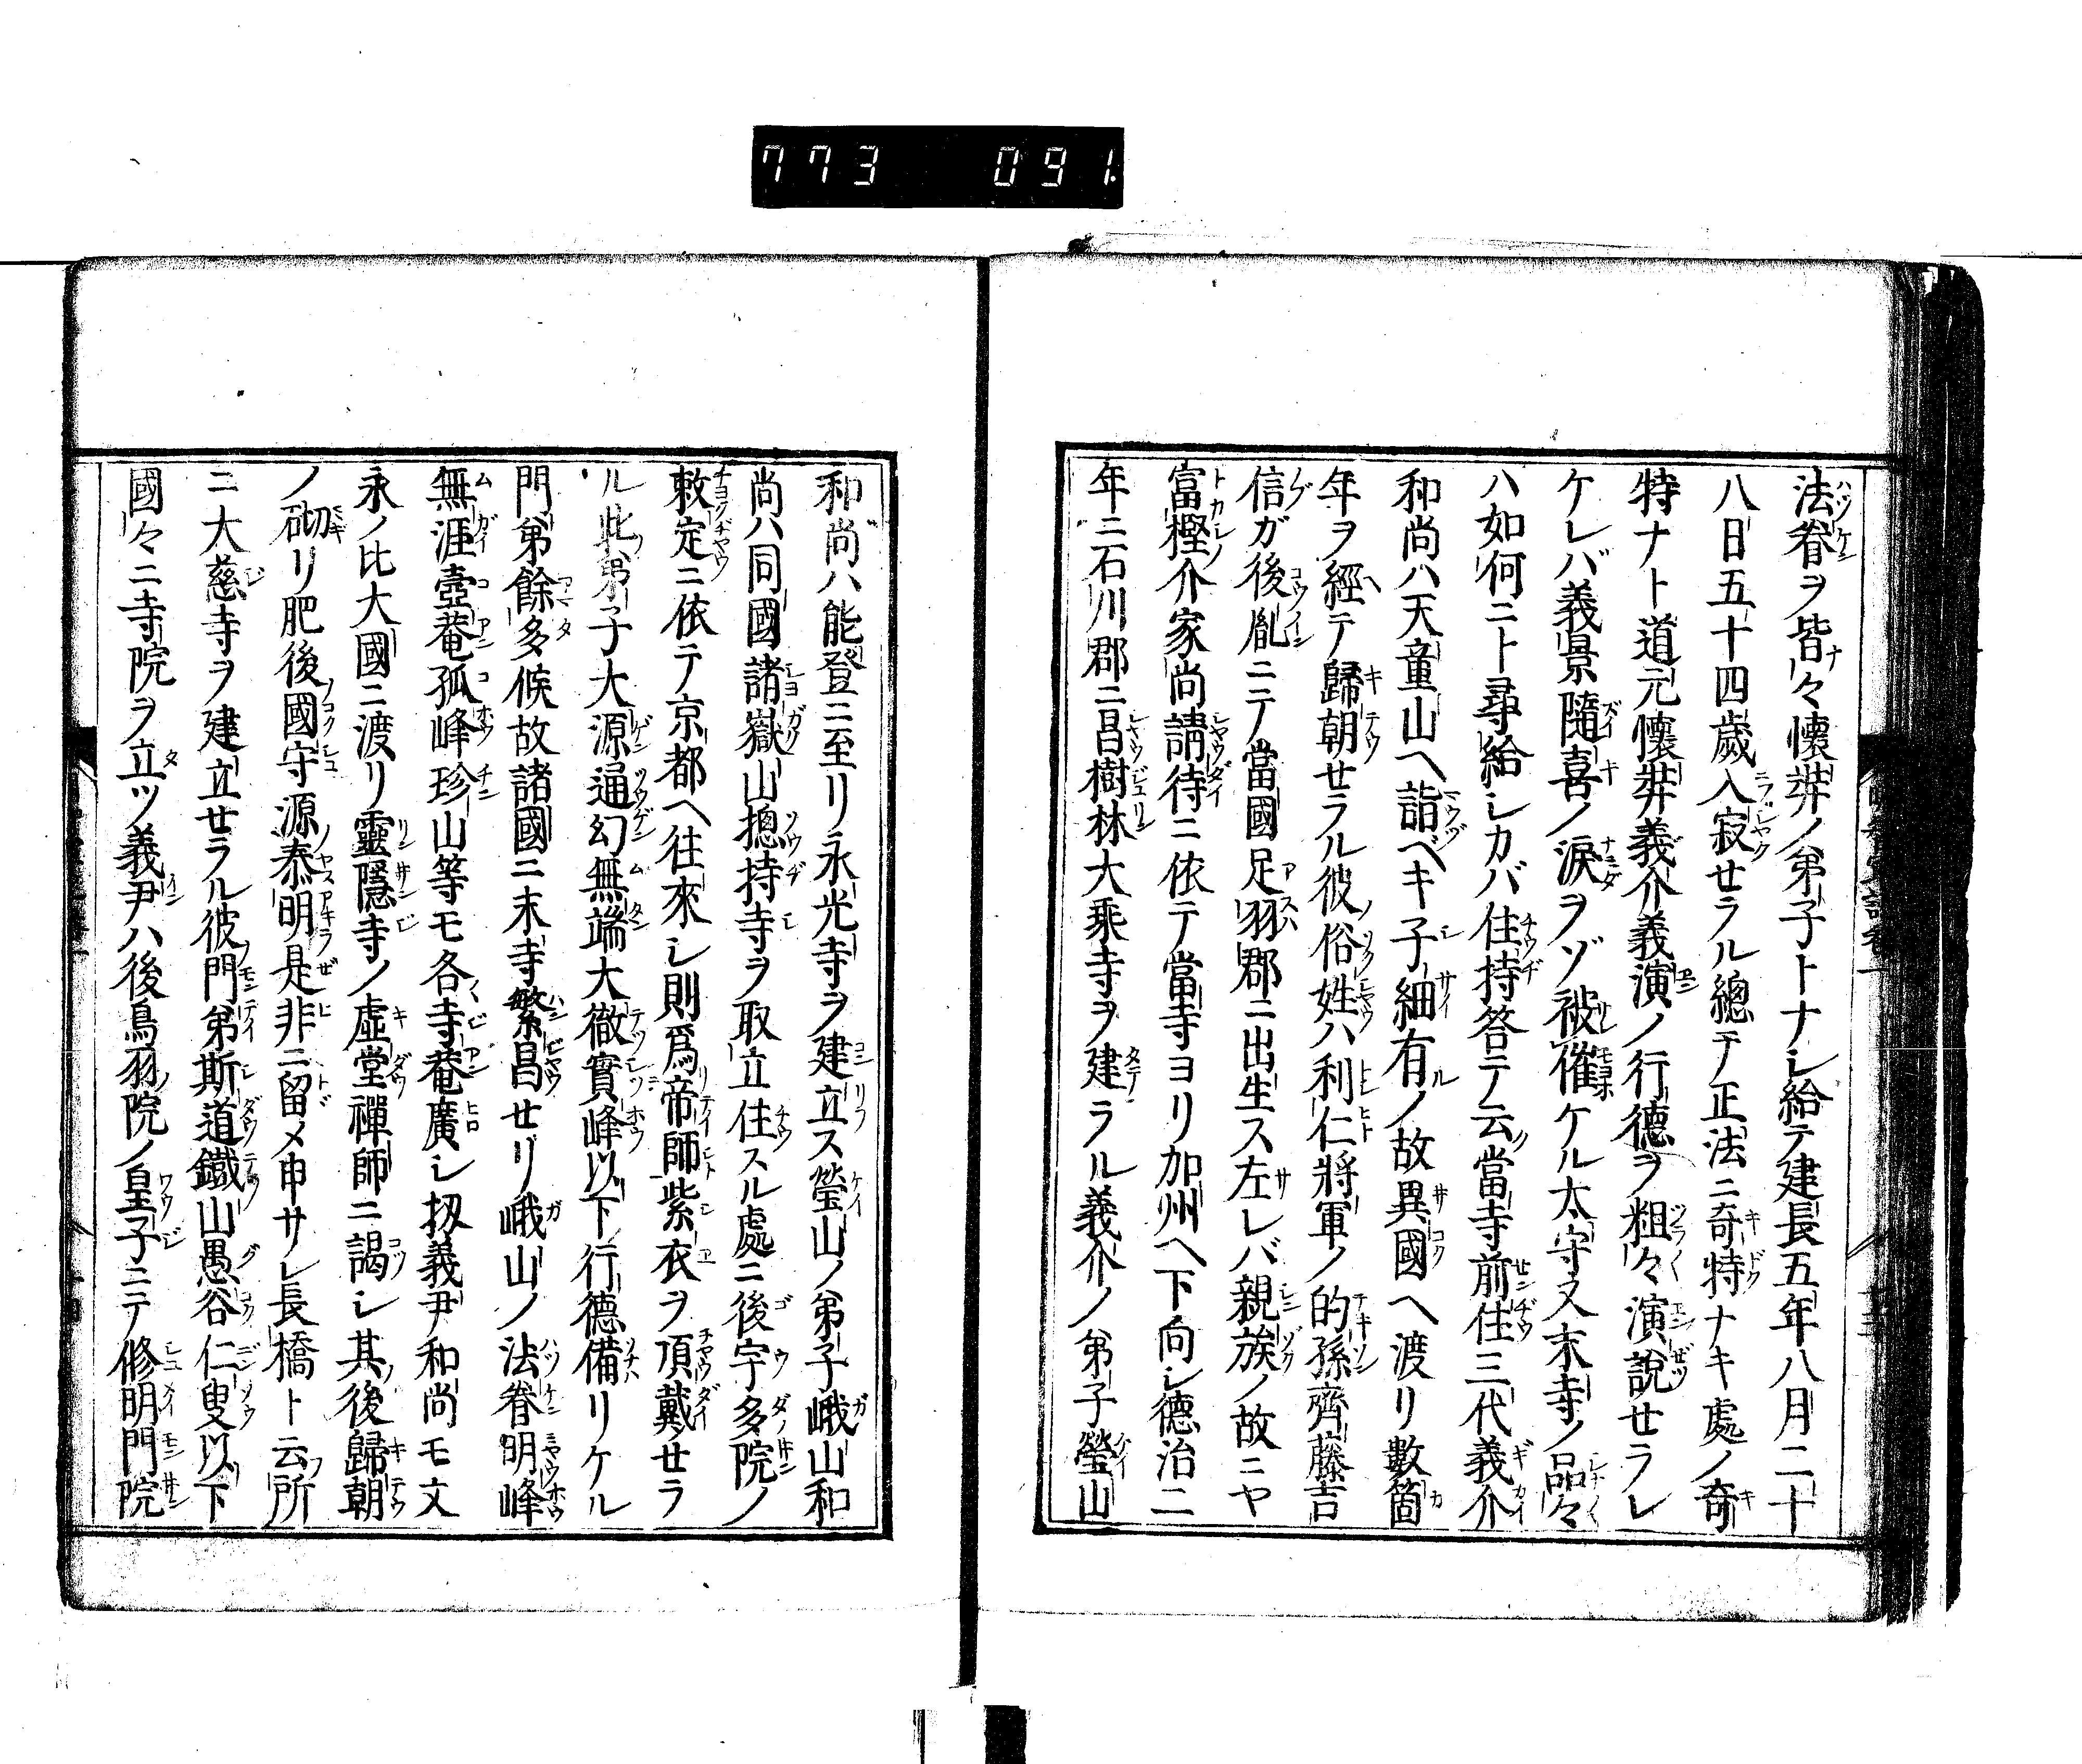 773 091
法眷ヲ皆々懷弉ノ弟子トナシ給テ建長五年八月二十
八日五十四歲入寂セラル總テ正法ニ奇特ナキ處ノ奇
特ナト道元懷弉義介義演ノ行德ヲ粗々演說セラレ
ケレバ義景隨喜ノ淚ヲゾ被催ケル太守又末寺ノ品々
ハ如何ニト尋給シカバ住持答テ云當寺前住三代義介
和尚ハ天童山へ詣ベキ子細有ノ故異國へ渡リ數箇
年ヲ經テ歸朝セラル彼俗姓ハ利仁將軍ノ的孫齊藤吉
信ガ後胤ニテ當國足羽郡ニ出生ス左レバ親族ノ故ニヤ
富樫介家尚請待ニ依テ當寺ヨリ加州へ下向シ德治二
年ニ石川郡ニ昌樹林大乘寺ヲ建ラル義介ノ弟子瑩山
和尚ハ能登ニ至リ永光寺ヲ建立ス瑩山ノ弟子峨山和
尚ハ同國諸嶽山摠持寺ヲ取立住スル處ニ後宇多院ノ
敕定ニ依テ京都へ往來シ則爲帝師紫衣ヲ頂戴セラ
ル此弟子大源通幻無端大徹實峰以下行德備リケル
門弟餘多候故諸國ニ末寺繁昌セリ峨山ノ法眷明峰
無涯壺菴孤峰珍山等モ各寺菴廣シ扨義尹和尚モ文
永ノ比大國ニ渡リ靈隱寺ノ虛堂禪師ニ謁シ其後歸朝
ノ砌リ肥後國守源泰明是非ニ留メ申サレ長橋ト云所
ニ大慈寺ヲ建立セラル彼門弟斯道鐵山愚谷仁叟以下
國々ニ寺院ヲ立ツ義尹ハ後鳥羽院ノ皇子ニテ修明門院